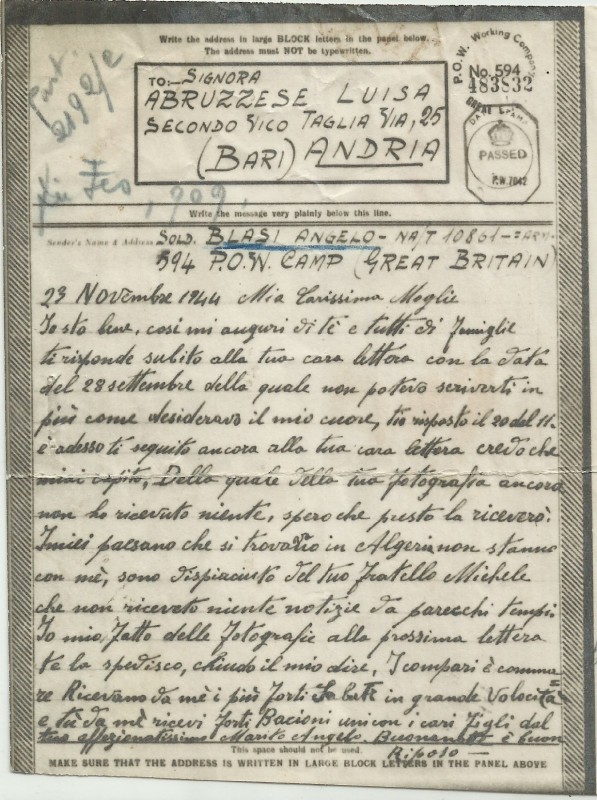 Write the address in large BLOCK letters in the panel below.
The address must NOT be typewritten.
P.O.W. Working Company
No. 594
483832
PASSED
P.W. 7042
2192/2
TO:— SIGNORA
ABRUZZESE LUISA
SECONDO VICO TAGLIA VIA, 25
(BARI) ANDRIA
Write the message very plainly below this line.
Sender's Name & Address SOLD. BLASI ANGELO – NA/T 10861 –
594 P.O.W. CAMP (GREAT BRITAIN)
23 Novembre 1944 Mia Carissima Moglie
Io sto bene, così mi auguri di tè e tutti di famiglie
ti risponde subito alla tua cara lettera con la data
del 28 settembre della quale non potevo scriverti in
più come desiderava il mio cuore, tio risposto il 20 del 11-
è adesso ti seguito ancora alla tua cara lettera credo che
miai capito, Della quale della tua fotografia ancora
non ho ricevuto niente, spero che presto la riceverò.
I miei paesano che si trovavo in Algeria non stanno
con mè, sono dispiaciuto del tuo fratello Michele
che non ricevato niente notizie da parecchi tempi
Io mio fatto delle fotografie alla prossima lettera
te la spedisco, chiudo il mio dire, I compari è comma=
re Ricevano da mè i più forti Saluti in grande Velocità
e tù da mè ricevi forti Bacioni unicon i cari figli dal
tuo affezionatissimo Marito Angelo. Buonanotte è buon
Riposo —
This space should not be used.
MAKE SURE THAT THE ADDRESS IS WRITTEN IN LARGE BLOCK LETTERS IN THE PANEL ABOVE